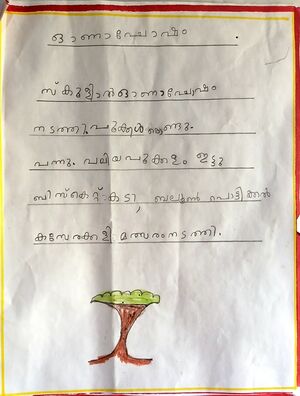 ഓണാഘോഷം .
സ്കൂളിൽ ഓണാഘോഷം
നടത്തി. പൂക്കൾ കൊണ്ടു
വന്നു. വലിയ പൂക്കളം ഇട്ടു
ബിസ്കെറ്റ് കടി, ബലൂൺ പൊട്ടിക്കൽ
കസേരക്കളി മത്സരം നടത്തി.